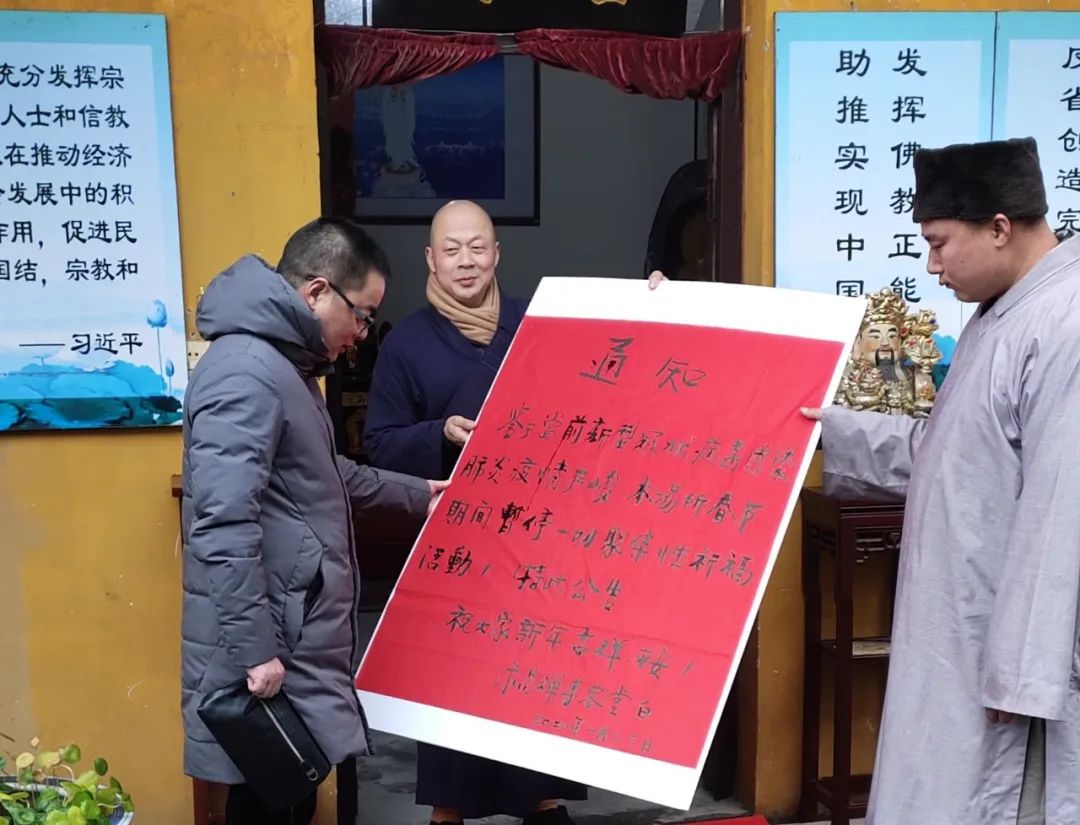 充分发挥宗
人士和信教
在推动经济
发展中的积
作用，促进民
结，宗教和
——习近平
通知
鉴于当前新型冠状病毒感染
肺炎疫情严峻 本场所春节
期间暫停一切聚集性祈福
活動！特此公告
祝大家新年吉祥、平安！
禅寺客堂白
反省创造完
发挥佛教正能
助推实现中国